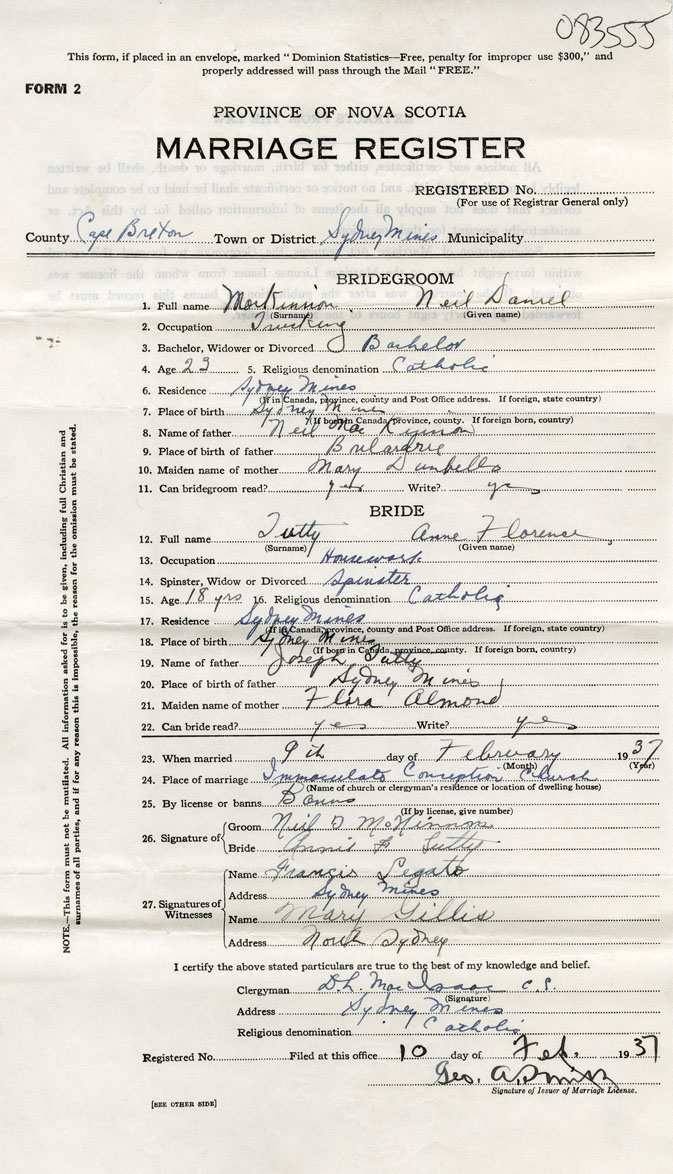 083555
This form, if placed in an envelope, marked "Dominion Statistics—Free, penalty for improper use $300," and
properly addressed will pass through the Mail "FREE."
FORM 2
PROVINCE OF NOVA SCOTIA
MARRIAGE REGISTER
REGISTERED No.
(For use of Registrar General only)
County Cape Breton Town or District Sydney Mines Municipality
BRIDEGROOM
1. Full name MacKinnon Neil Daniel
(Surname) (Given name)
2. Occupation Trucking
3. Bachelor, Widower or Divorced Bachelor
4. Age 23 5. Religious denomination Catholic
6. Residence Sydney Mines
(If in Canada, province, county and Post Office address. If foreign, state country)
7. Place of birth Sydney Mines
(If born in Canada, province, county. If foreign born, country)
8. Name of father Neil Mac Kinnon
9. Place of birth of father
10. Maiden name of mother Mary
11. Can bridegroom read? yes Write? yes
BRIDE
12. Full name Tutty Anne Florence
(Surname) (Given name)
13. Occupation Housework
14. Spinster, Widow or Divorced Spinster
15. Age 18 yrs 16. Religious denomination Catholic
17. Residence Sydney Mines
(If in Canada, province, county and Post Office address. If foreign, state country)
18. Place of birth Sydney Mines
(If born in Canada, province, county. If foreign born, country)
19. Name of father Joseph Tutty
20. Place of birth of father Sydney Mines
21. Maiden name of mother Flora Almond
22. Can bride read? yes Write? yes
23. When married 9th day of February 1937
(Month) (Year)
24. Place of marriage Immaculate Conception Church
(Name of church or clergyman's residence or location of dwelling house)
25. By license or banns Banns
(If by license, give number)
26. Signature of
Groom Neil D McKinnon
Bride Annie F Tutty
27. Signatures of Witnesses
Name Francis Legato
Address Sydney Mines
Name Mary Gillis
Address North Sydney
I certify the above stated particulars are true to the best of my knowledge and belief.
Clergyman D.L. MacIsaac
(Signature)
Address Sydney Mines
Religious denomination Catholic
Registered No. Filed at this office 10 day of Feb. 1937
Geo. A Smith
Signature of Issuer of Marriage License.
[SEE OTHER SIDE]
NOTE.—This form must not be mutilated. All information asked for is to be given, including full Christian and
surnames of all parties, and if for any reason this is impossible, the reason for the omission must be stated.